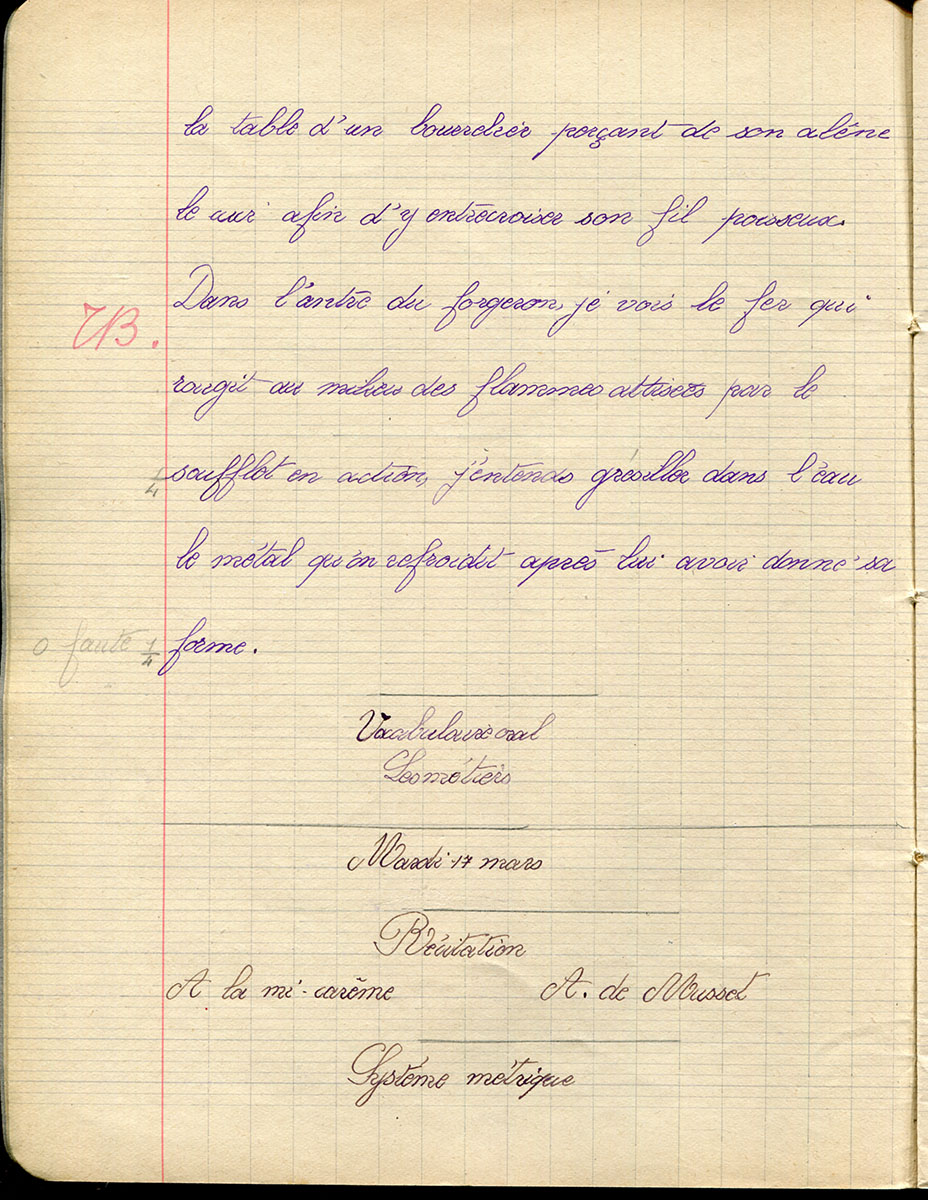 la table d'un bourrelier perçant de son alène
le cuir afin d'y entrecroiser son fil poisseux.
Dans l'antre du forgeron, je vois le fer qui
TB.
rougit au milieu des flammes attisées par le
1/4 soufflet en action, j'entends grésiller dans l'eau
le métal qu'on refroidit après lui avoir donné sa
0 faute 1/4 forme.
Vocabulaire oral
Les métiers
Mardi 17 mars
Récitation
A la mi-carême A. de Musset
Système métrique